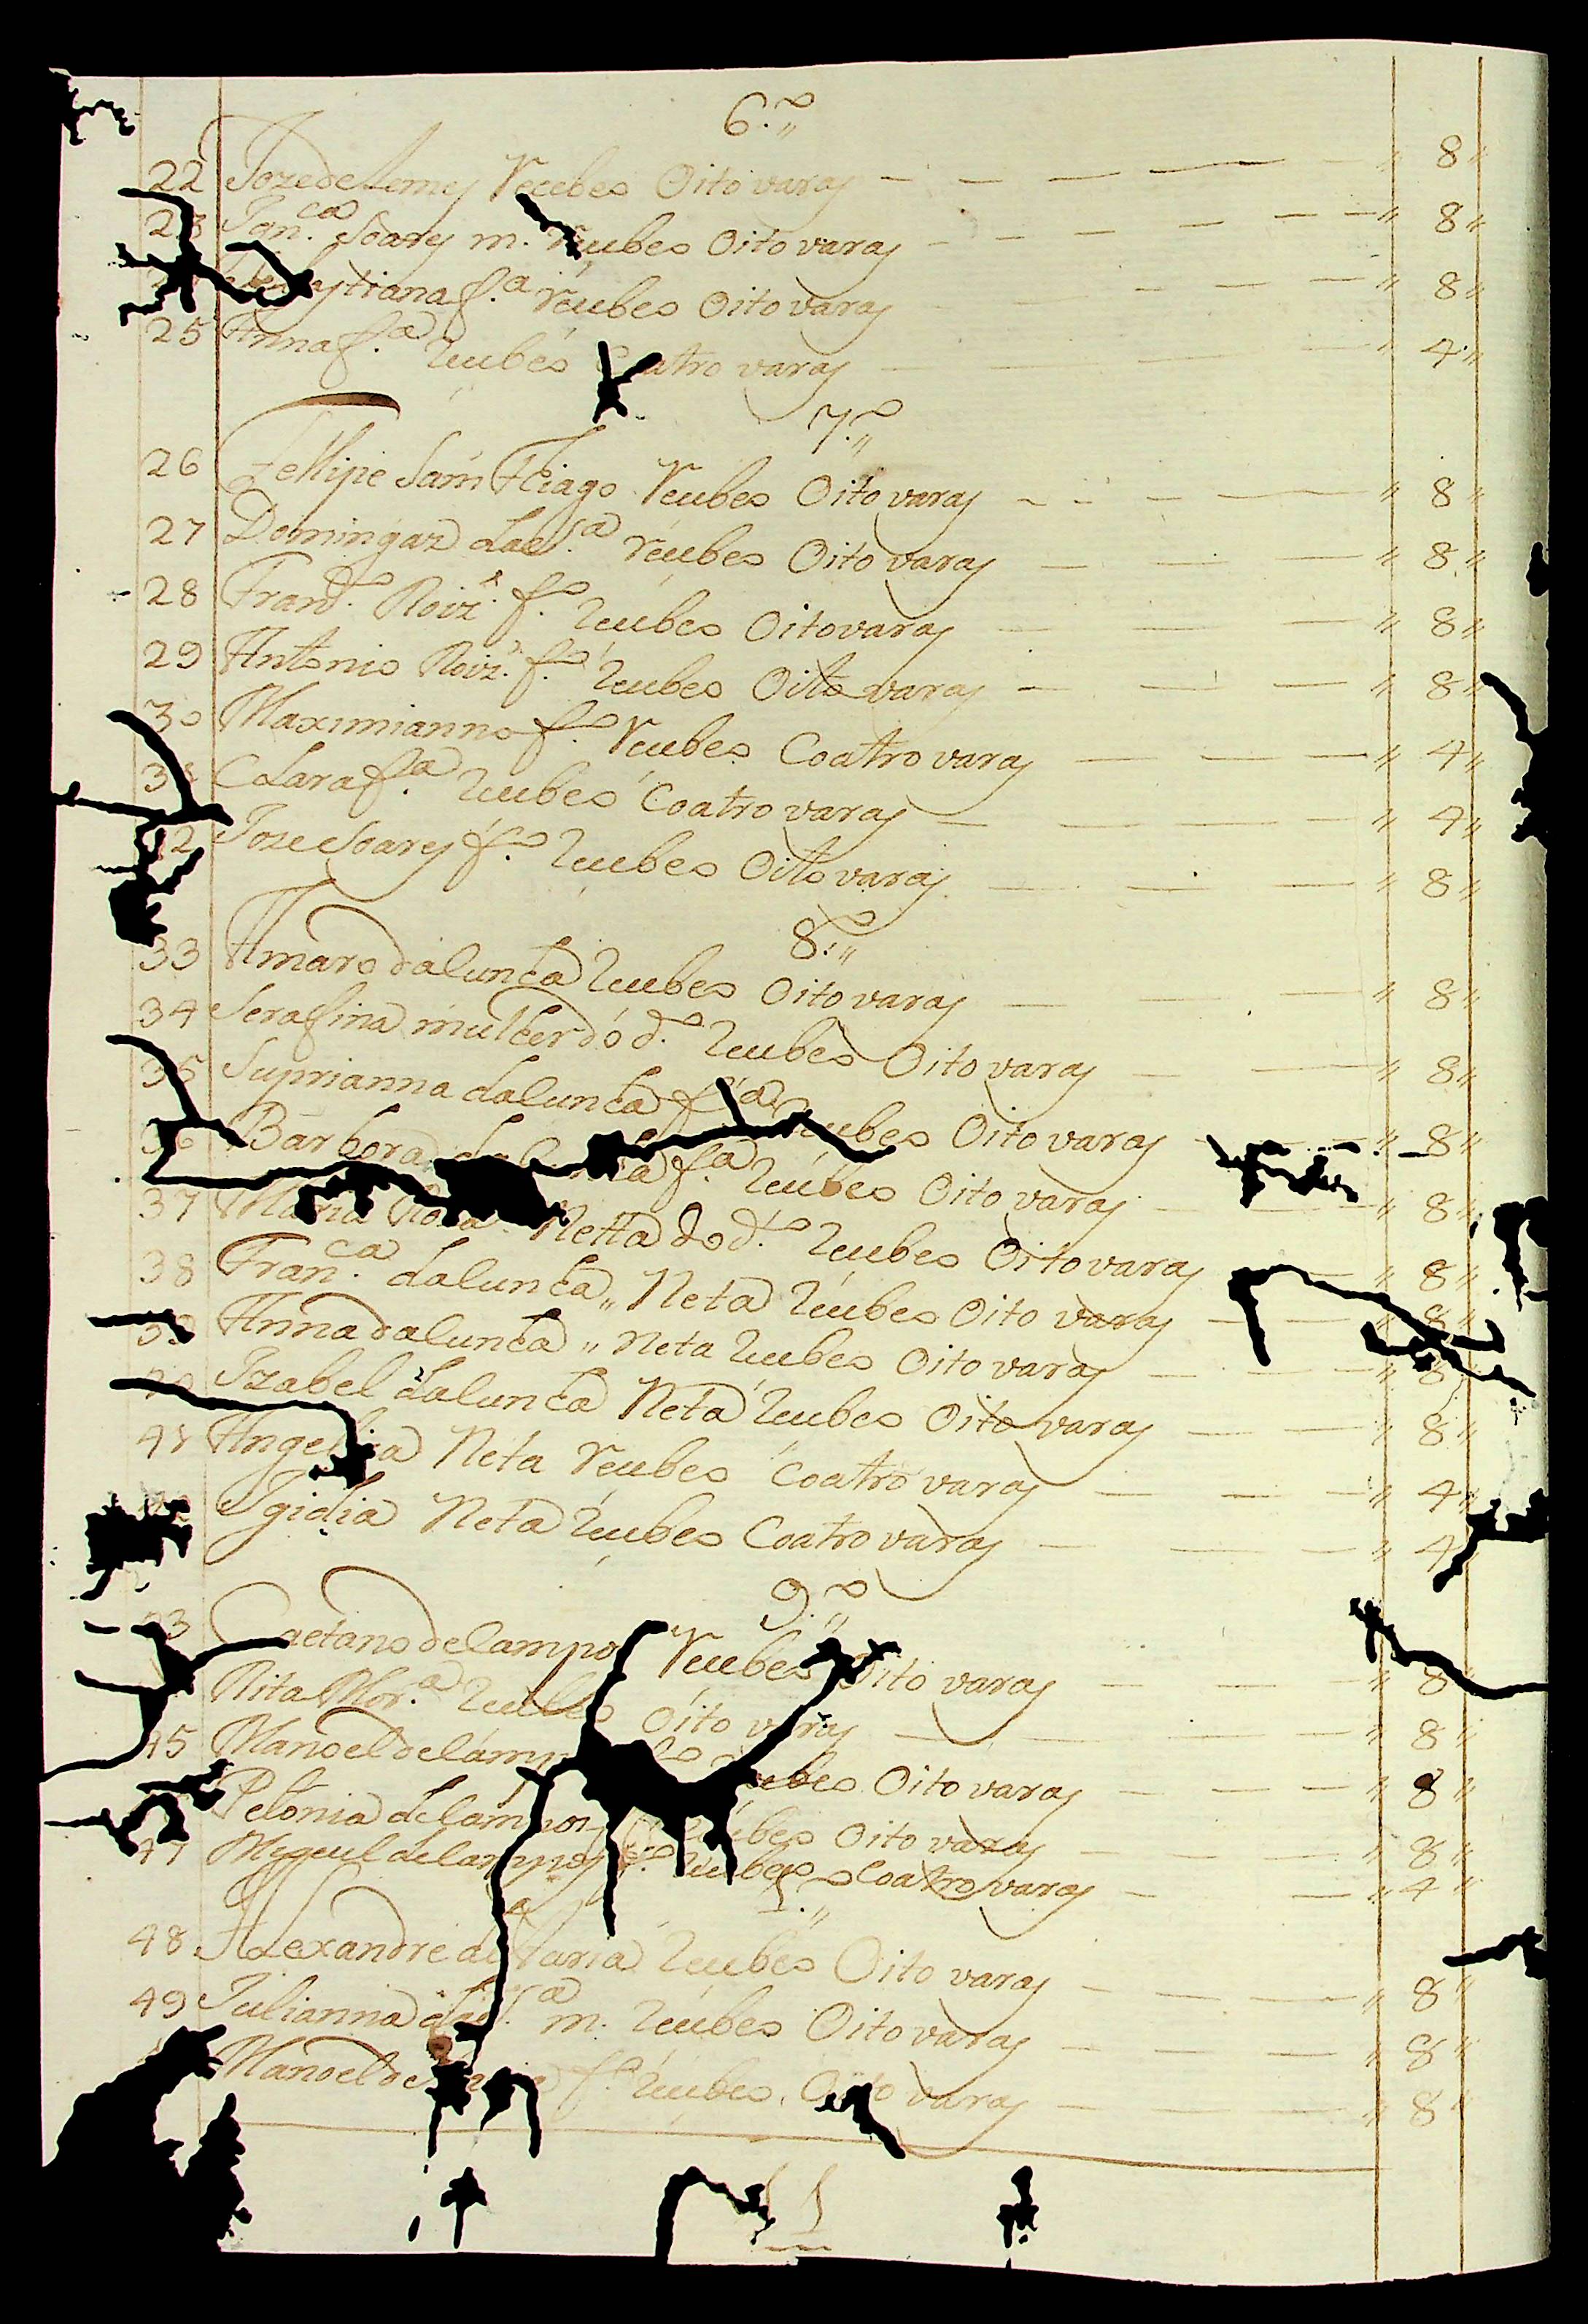 6.º „
22 Joze de Lemes Recebeo Oito varas — — — — „ 8 „
23 Ign.co Soares m. Recebeo Oito varas — — — — „ 8 „
f.a Recebeo Oito varas — — — „ 8 „
25 Anna f.a Recebeo Coatro varas — — — „ 4 „
7.º „
26 Fellipe Sam Thiago Recebeo Oito varas — — — „ 8 „
27 Domingaz da S.a Recebeo Oito varas — — — „ 8 „
28 Fran.co Roiz. f.º Recebeo Oito varas — — — „ 8 „
29 Antonio Roiz. f.º Recebeo Oito varas — — — „ 8 „
30 Maximianno f.º Recebeo Coatro varas — — — „ 4 „
Clara f.a Recebeo Coatro varas — — — „ 4 „
Joze Soares f.º Recebeo Oito varas — — — „ 8 „
8.º „
33 Amaro dalunha Recebeo Oito varas — — — „ 8 „
34 Serafina mulher do d.º Recebeo Oito varas — — „ 8 „
35 Suprianna dalunha f.a Recebeo Oito varas — — „ 8 „
36 Barbora f.a Recebeo Oito varas — — „ 8 „
37 Maria Roza Netta do d.º Recebeo Oito varas — „ 8 „
38 Fran.ca dalunha „ Neta Recebeo Oito varas — „ 8 „
39 Anna dalunha „ Neta Recebeo Oito varas — — „ 8 „
Izabel dalunha Neta Recebeo Oito varas — — „ 8 „
41 Angelica Neta Recebeo Coatro varas — — — „ 4 „
Igidia Neta Recebeo Coatro varas — — — „ 4 „
9.º „
Caetano de Campos Recebeo Oito varas — — — „ 8 „
Rita Mor.a Recebeo Oito varas — — — „ 8 „
45 Manoel de Camp f.º Recebeo Oito varas — — — „ 8 „
Pelonia de Campos Recebeo Oito varas — — — „ 8 „
47 Migeul de Campos f.º Recebeo Coatro varas — — „ 4 „
48 Alexandre de Faria Recebeo Oito varas — — — „ 8 „
49 Julianna da S.a m. Recebeo Oito varas — — — „ 8 „
Manoel de f.º Recebeo Oito varas — — — „ 8 „